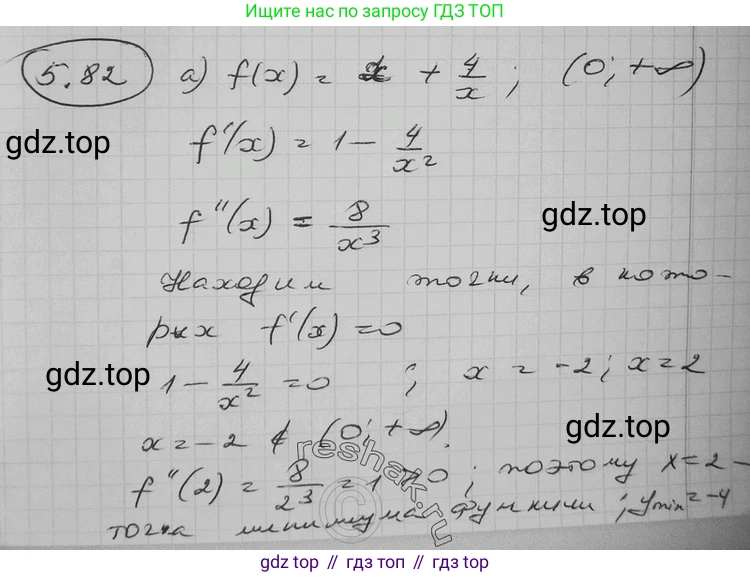 Ищите нас по запросу ГДЗ ТОП
5.82 а) f(x) = x + 4/x ; (0; +∞)
gdz.top
f'(x) = 1 - 4/x²
f''(x) = 8/x³
gdz.top
Находим точки, в кото-
рых f'(x) = 0
gdz.top
1 - 4/x² = 0 ; x = -2; x = 2
gdz.top
x = -2 ∉ (0; +∞).
reshak.ru
f''(2) = 8/2³ = 1 > 0 ; поэтому x = 2 -
точка минимума функции ; ymin = -4
gdz.top // gdz.top // gdz.top // gdz.top